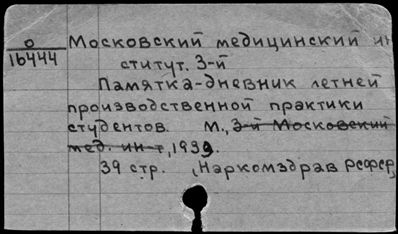 О
16444
Московский медицинский ин
ститут. 3-й
Памятка-дневник летней
производственной практики
студентов. М., 3-й Московский
мед. ин-т, 1939.
39 стр. (Наркомздрав РСФСР)